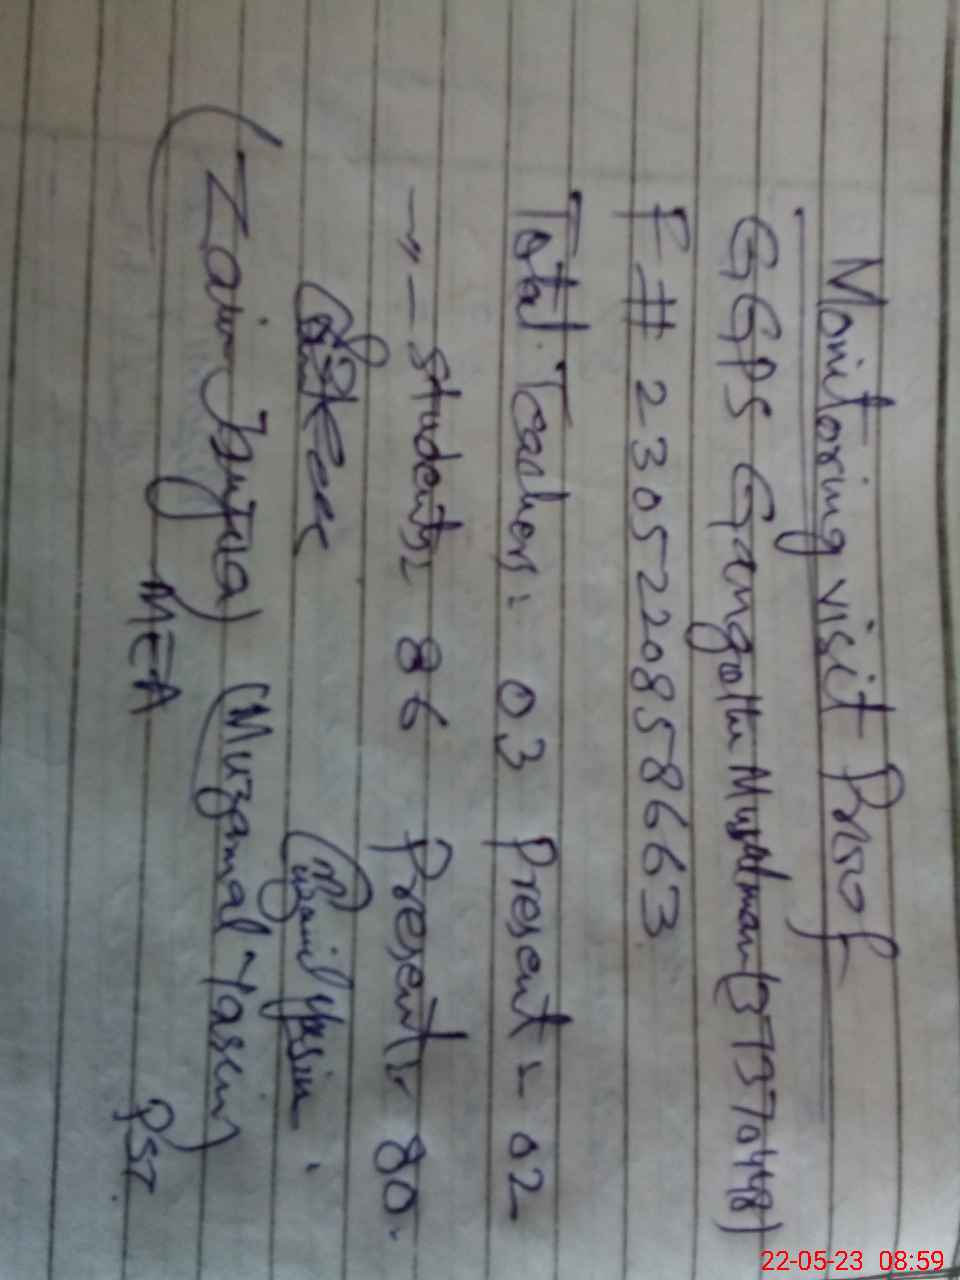 Monitoring visit Proof
GGPS Gangothi Musalman (37370448)
F # 2305220858663
Total Teachers: 03 Present = 02
-"- Students: 86 Present: 80.
Muzamil Yassin
(Muzammal Yasein)
MEA PST.
22-05-23 08:59